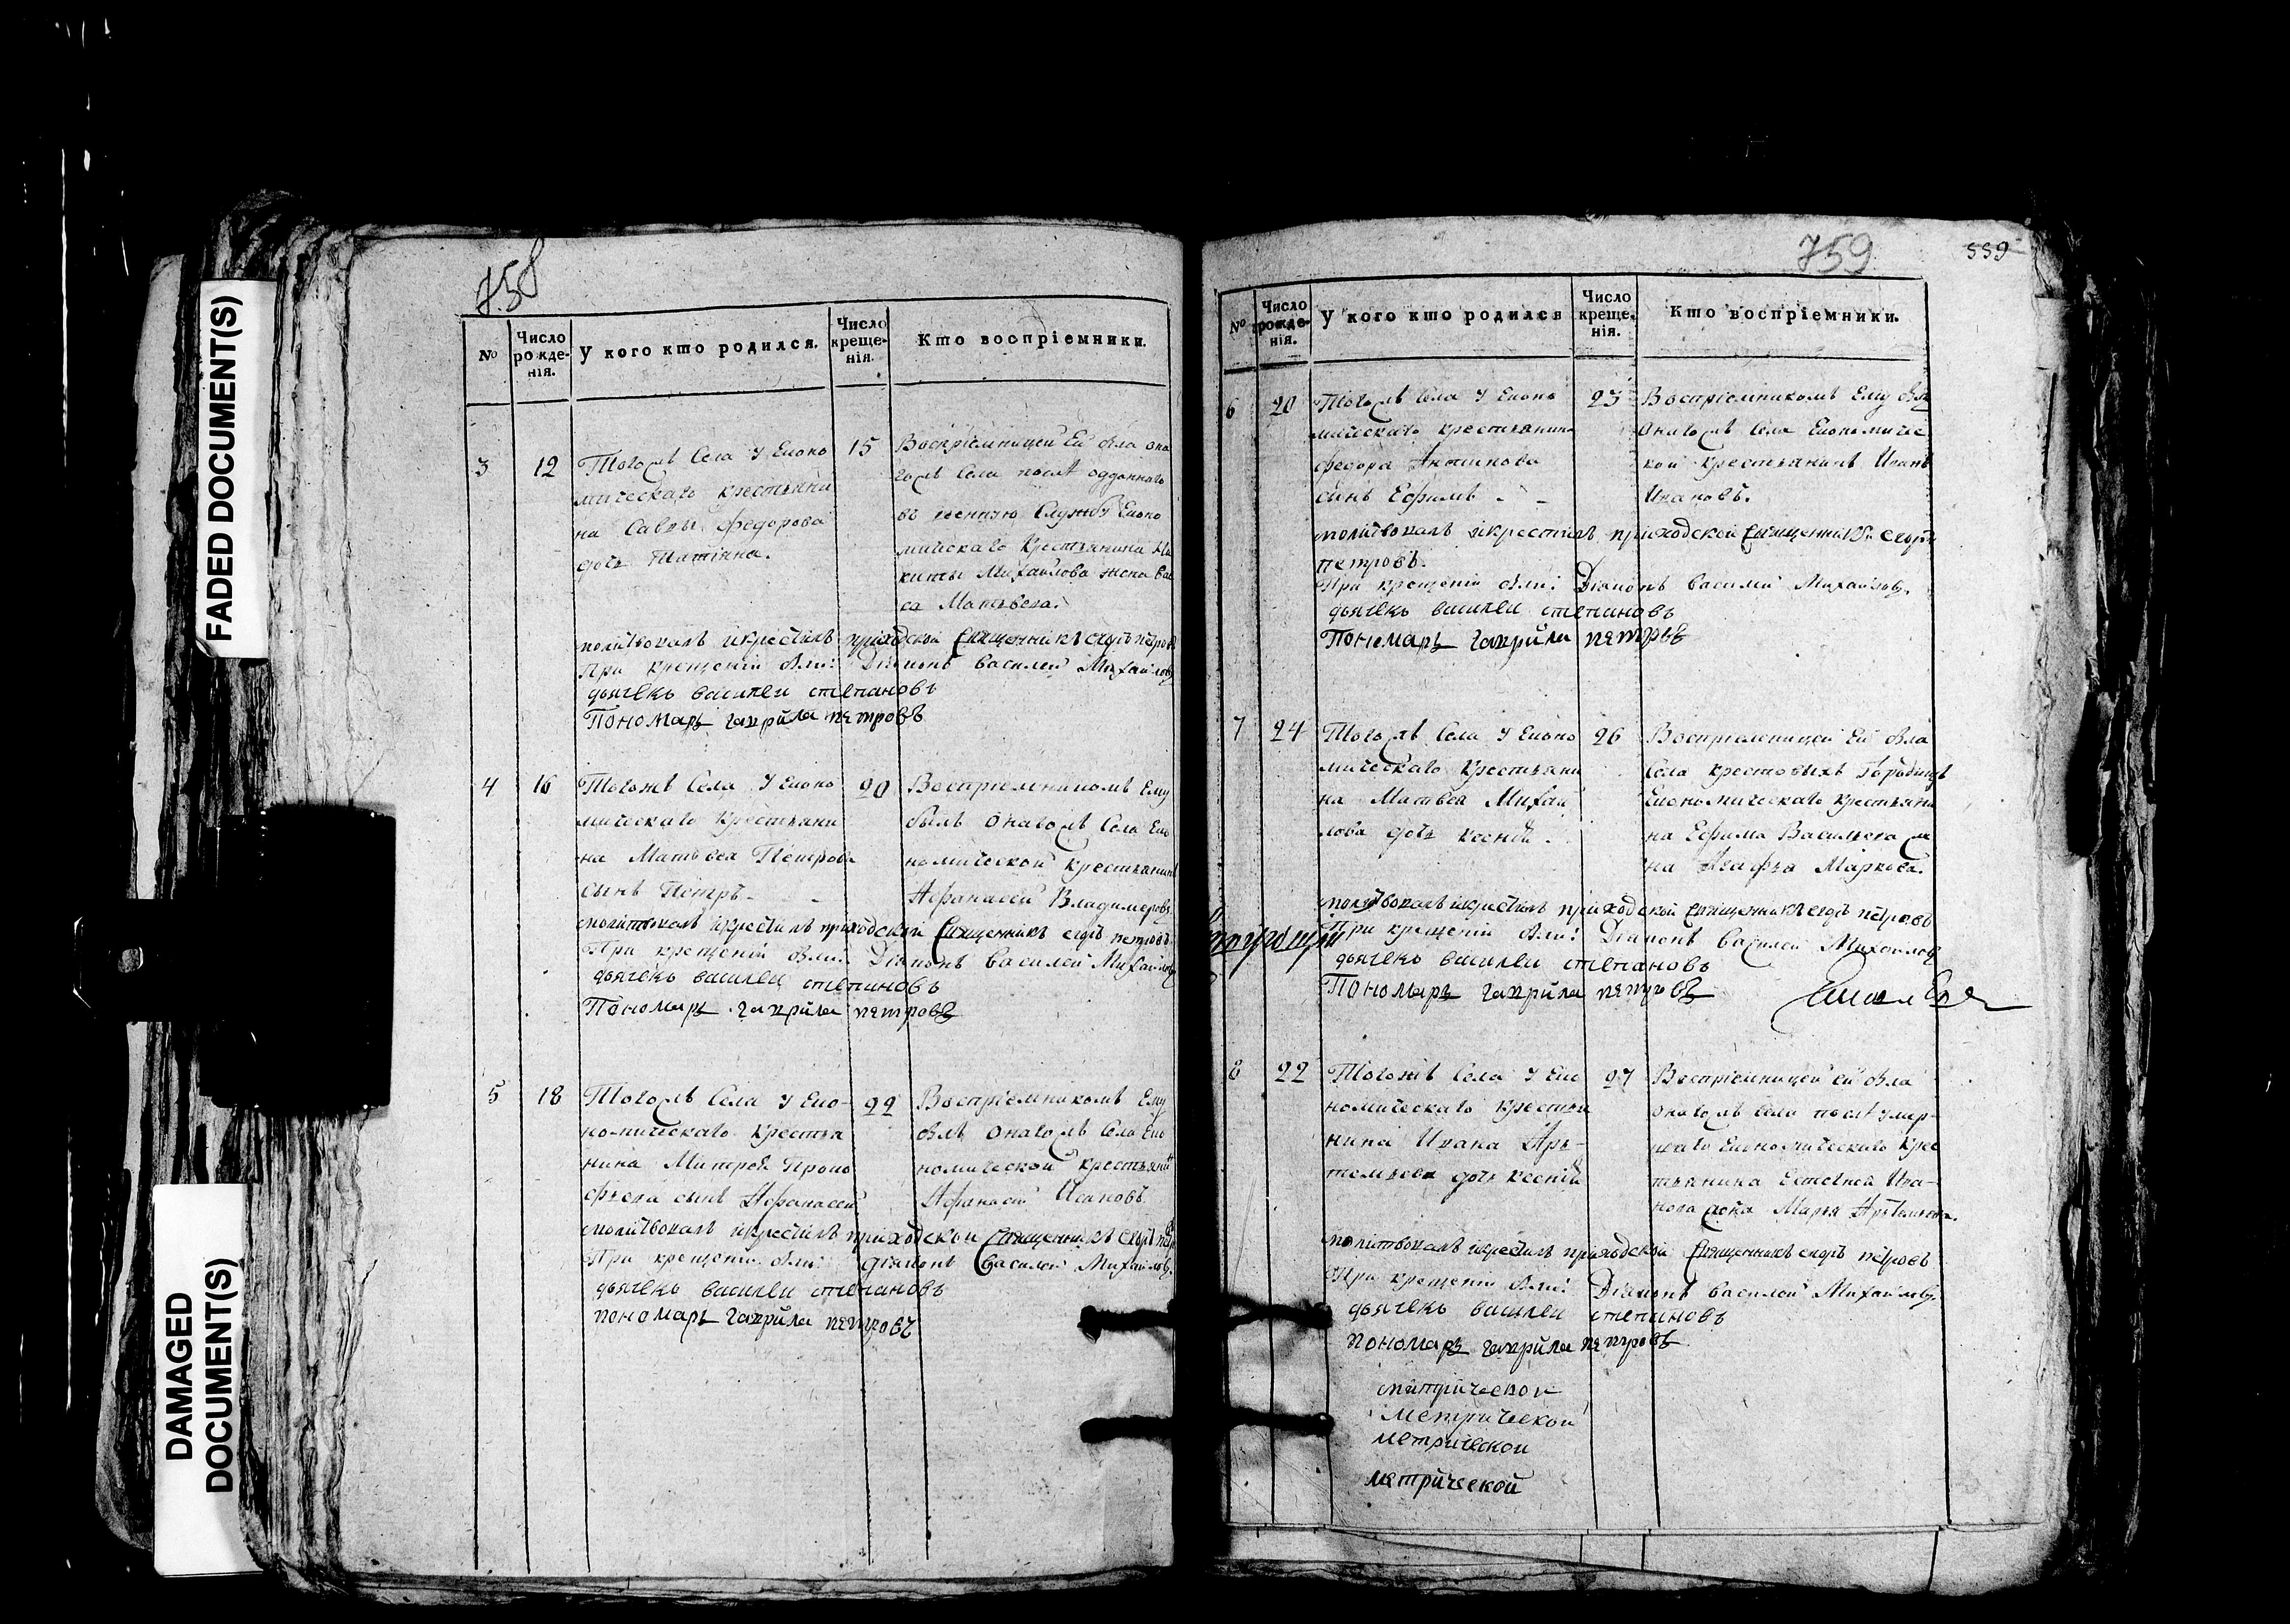 FADED DOCUMENT(S)
DAMAGED
DOCUMENT(S)
758
№
Число рожденія.
У кого кто родился.
Число крещенія.
Кто воспріемники.
3
12
Тогожъ Села У Еконо
мическаго крестьяни
на Саввы Федорова
дочь Татіяна.
15
Воспріемницей Ей была она
гожъ Села послѣ отданнаго
въ военную Службу Еконо
мическаго Крестьянина Ни
киты Михайлова жена Вас
са Матвеева.
молитвовалъ икрестилъ приходской Священникъ
При крещеніи были: Діаконъ Василей Михайловъ
дьячекъ василеи степановъ
Пономарь гаврила петровъ
4
16
Тогожъ Села У Еконо
мическаго Крестьяни
на Матвея Петрова
сынъ Петръ.
20
Воспріемникомъ Ему
былъ Онагожъ Села Эко
номической крестьянинъ
Афанасей Владимеровъ
молитвовалъ икрестилъ приходской Священникъ петровъ
При крещеніи были: Діаконъ Василей Михайловъ
дьячекъ василеи степановъ
Пономарь гаврила петровъ
5
18
Тогожъ Села У Эко-
номическаго Крестья
нина Митрофа Проко
фьева сынъ Афанасей
22
Воспріемникомъ Ему
былъ Онагожъ Села Эко
номической крестьянинъ
Афанасей Исаковъ.
молитвовалъ икрестилъ приходской Священникъ
При крещеніи были: діаконъ Василей Михайловъ
дьячекъ василеи степановъ
пономарь гаврила петровъ
759
559
№
Число рожденія.
У кого кто родился
Число крещенія.
Кто воспріемники.
6
20
Тогожъ Села У Еконо
мическаго крестьянина
федора Антипова
сынъ Ефимъ
23
Воспріемникомъ Ему былъ
Онагожъ Села Економичес
кой крестьянинъ Иванъ
Ивановъ.
молитвовалъ икрестилъ приходской Священникъ
петровъ.
При крещеніи были: Діаконъ Василей Михайловъ.
дьячекъ василеи степановъ
Пономарь гаврила петровъ
7
24
Тогожъ Села У Еконо
мическаго Крестьяни
на Матвея Михай
лова дочь Ксенія.
26
Воспріемницей Ей была
Села крестовыхъ Городищъ
Економическаго крестьяни
на Ефима Васильева же
на Агафья Маркова.
молитвовалъ икрестилъ приходской Священникъ петровъ
При крещеніи были: Діаконъ Василей Михайловъ
дьячекъ василеи степановъ
Пономарь гаврила петровъ
8
22
Тогожъ Села У Эко
номическаго крестья
нина Ивана Арь-
темьева дочь Ксенія
27
Воспріемницей ей была
онагожъ Села послѣ умер-
шаго Економическаго Крес
тьянина Евсевея Ива-
нова жена Марья Артемьева.
молитвовалъ икрестилъ приходской Священникъ петровъ
При крещеніи были: Діаконъ Василей Михайловъ.
дьячекъ василеи степановъ
пономарь гаврила петровъ
митрической
метрической
метрической
метрической